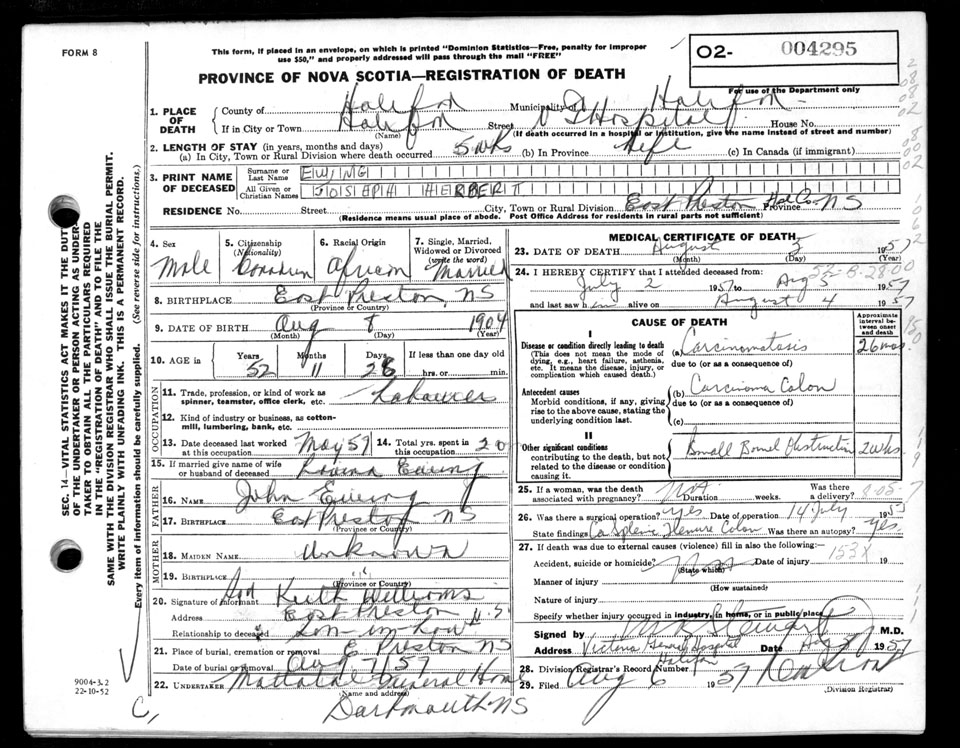 FORM 8
This form, if placed in an envelope, on which is printed "Dominion Statistics—Free, penalty for improper
use $50," and properly addressed will pass through the mail "FREE"
O2- 004295
For use of the Department only
PROVINCE OF NOVA SCOTIA—REGISTRATION OF DEATH
1. PLACE OF DEATH
County of Halifax Municipality of Halifax
If in City or Town Halifax Street V G Hospital House No.
(Name) (If death occurred in a hospital or institution, give the name instead of street and number)
2. LENGTH OF STAY (in years, months and days)
(a) In City, Town or Rural Division where death occurred 5 wks (b) In Province Life (c) In Canada (if immigrant)
3. PRINT NAME OF DECEASED
Surname or Last Name EWING
All Given or Christian Names JOSEPH HERBERT
RESIDENCE No. Street City, Town or Rural Division East Preston Hal Co Province NS
(Residence means usual place of abode. Post Office Address for residents in rural parts not sufficient)
4. Sex Male
5. Citizenship (Nationality) Canadian
6. Racial Origin African
7. Single, Married, Widowed or Divorced (write the word) Married
8. BIRTHPLACE East Preston, NS
(Province or Country)
9. DATE OF BIRTH Aug 8 1904
(Month) (Day) (Year)
10. AGE in Years 52 Months 11 Days 28 If less than one day old hrs. or min.
OCCUPATION
11. Trade, profession, or kind of work as spinner, teamster, office clerk, etc.
12. Kind of industry or business, as cotton-mill, lumbering, bank, etc.
13. Date deceased last worked at this occupation May 57 14. Total yrs. spent in this occupation 20
15. If married give name of wife or husband of deceased Ewing
FATHER
16. NAME John Ewing
17. BIRTHPLACE East Preston NS
(Province or Country)
MOTHER
18. MAIDEN NAME Unknown
19. BIRTHPLACE
(Province or Country)
20. Signature of informant Keith Williams
Address East Preston N.S.
Relationship to deceased Son in Law
21. Place of burial, cremation or removal E Preston NS
Date of burial or removal Aug 7/57
22. UNDERTAKER Mattatall Funeral Home
(Name and address)
Dartmouth NS
MEDICAL CERTIFICATE OF DEATH
23. DATE OF DEATH August 5 1957
(Month) (Day) (Year)
24. I HEREBY CERTIFY that I attended deceased from
July 2 1957 to Aug 5 1957
and last saw him alive on August 4 1957
CAUSE OF DEATH
Approximate interval between onset and death
I
Disease or condition directly leading to death
(This does not mean the mode of dying, e.g., heart failure, asthenia, etc. It means the disease, injury, or complication which caused death.)
(a) Carcinomatosis 26 mos.
due to (or as a consequence of)
Antecedent causes
Morbid conditions, if any, giving rise to the above cause, stating the underlying condition last.
(b) Carcinoma Colon
due to (or as a consequence of)
(c)
II
Other significant conditions
contributing to the death, but not related to the disease or condition causing it.
Small Bowel Obstruction 2 wks.
25. If a woman, was the death associated with pregnancy? Duration weeks. Was there a delivery?
26. Was there a surgical operation? yes Date of operation 14 July 1955
State findings Ca Splenic Flexure Colon Was there an autopsy? yes
27. If death was due to external causes (violence) fill in also the following:—
Accident, suicide or homicide? (State which) Date of injury 19
153X
Manner of injury
(How sustained)
Nature of injury
Specify whether injury occurred in industry, in home, or in public place
Signed by Stewart M.D.
Address Victoria General Hospital Halifax Date 1957
28. Division Registrar's Record Number
29. Filed Aug 6 1957
(Division Registrar)
SEC. 14—VITAL STATISTICS ACT MAKES IT THE DUTY
OF THE UNDERTAKER OR PERSON ACTING AS UNDER-
TAKER TO OBTAIN ALL THE PARTICULARS REQUIRED
IN THE "REGISTRATION OF DEATH" AND TO FILE THE
SAME WITH THE DIVISION REGISTRAR WHO SHALL ISSUE THE BURIAL PERMIT.
WRITE PLAINLY WITH UNFADING INK. THIS IS A PERMANENT RECORD.
Every item of information should be carefully supplied. (See reverse side for instructions.)
9004-3.2
22-10-52
C,